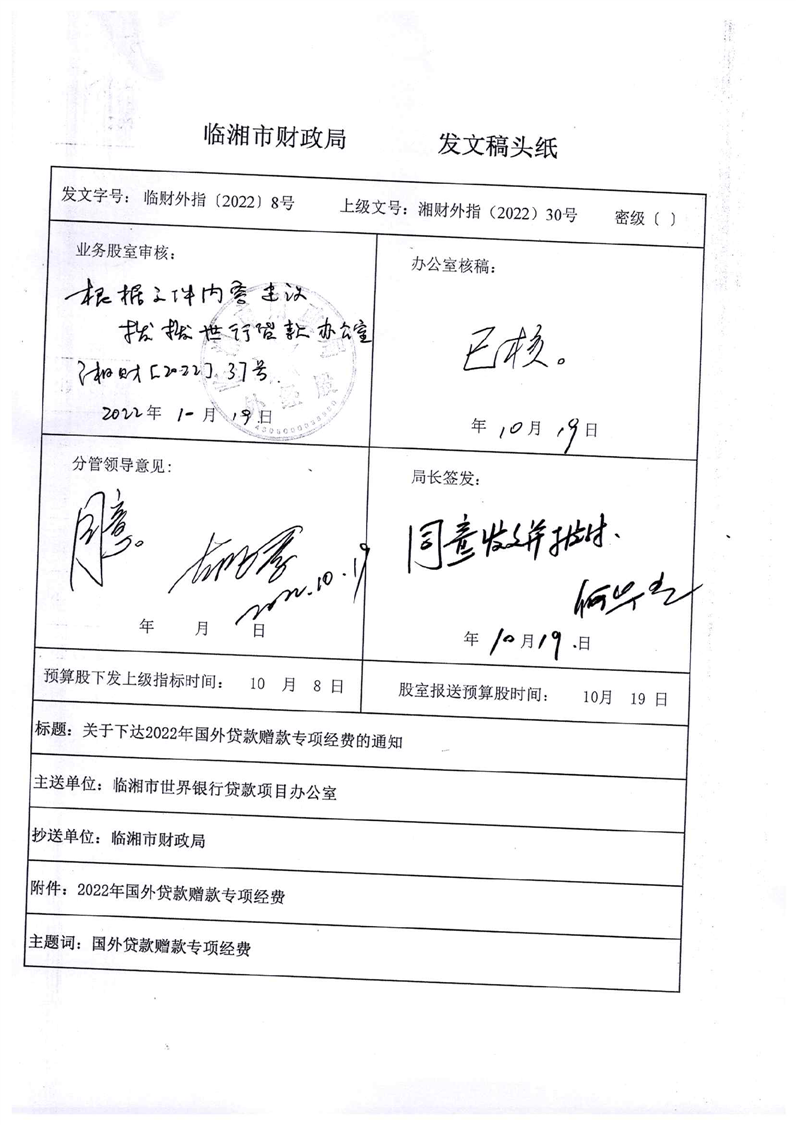 临湘市财政局 发文稿头纸
发文字号：临财外指〔2022〕8号 上级文号：湘财外指（2022）30号 密级〔 〕
业务股室审核：
根据文件内容建议
拨世行贷款办公室
湘财[2022]37号.
2022年10月19日
办公室核稿：
已核。
年10月19日
分管领导意见:
同意。
2022.10.19
年 月 日
局长签发：
同意发文并拨付.
年10月19.日
预算股下发上级指标时间： 10 月 8 日
股室报送预算股时间： 10月 19 日
标题：关于下达2022年国外贷款赠款专项经费的通知
主送单位：临湘市世界银行贷款项目办公室
抄送单位：临湘市财政局
附件：2022年国外贷款赠款专项经费
主题词：国外贷款赠款专项经费